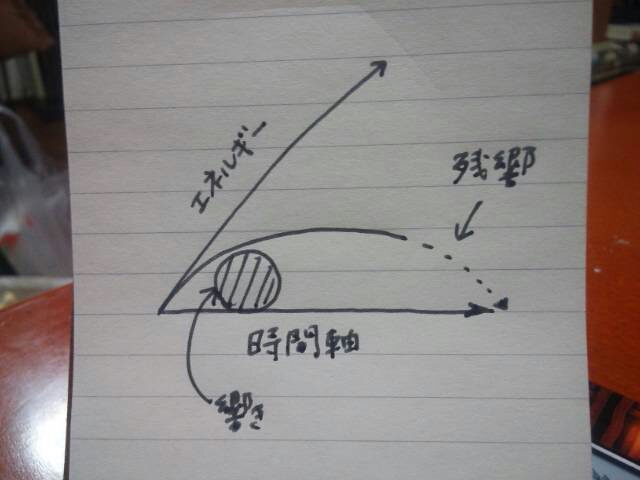 エネルギー
残響
時間軸
響き